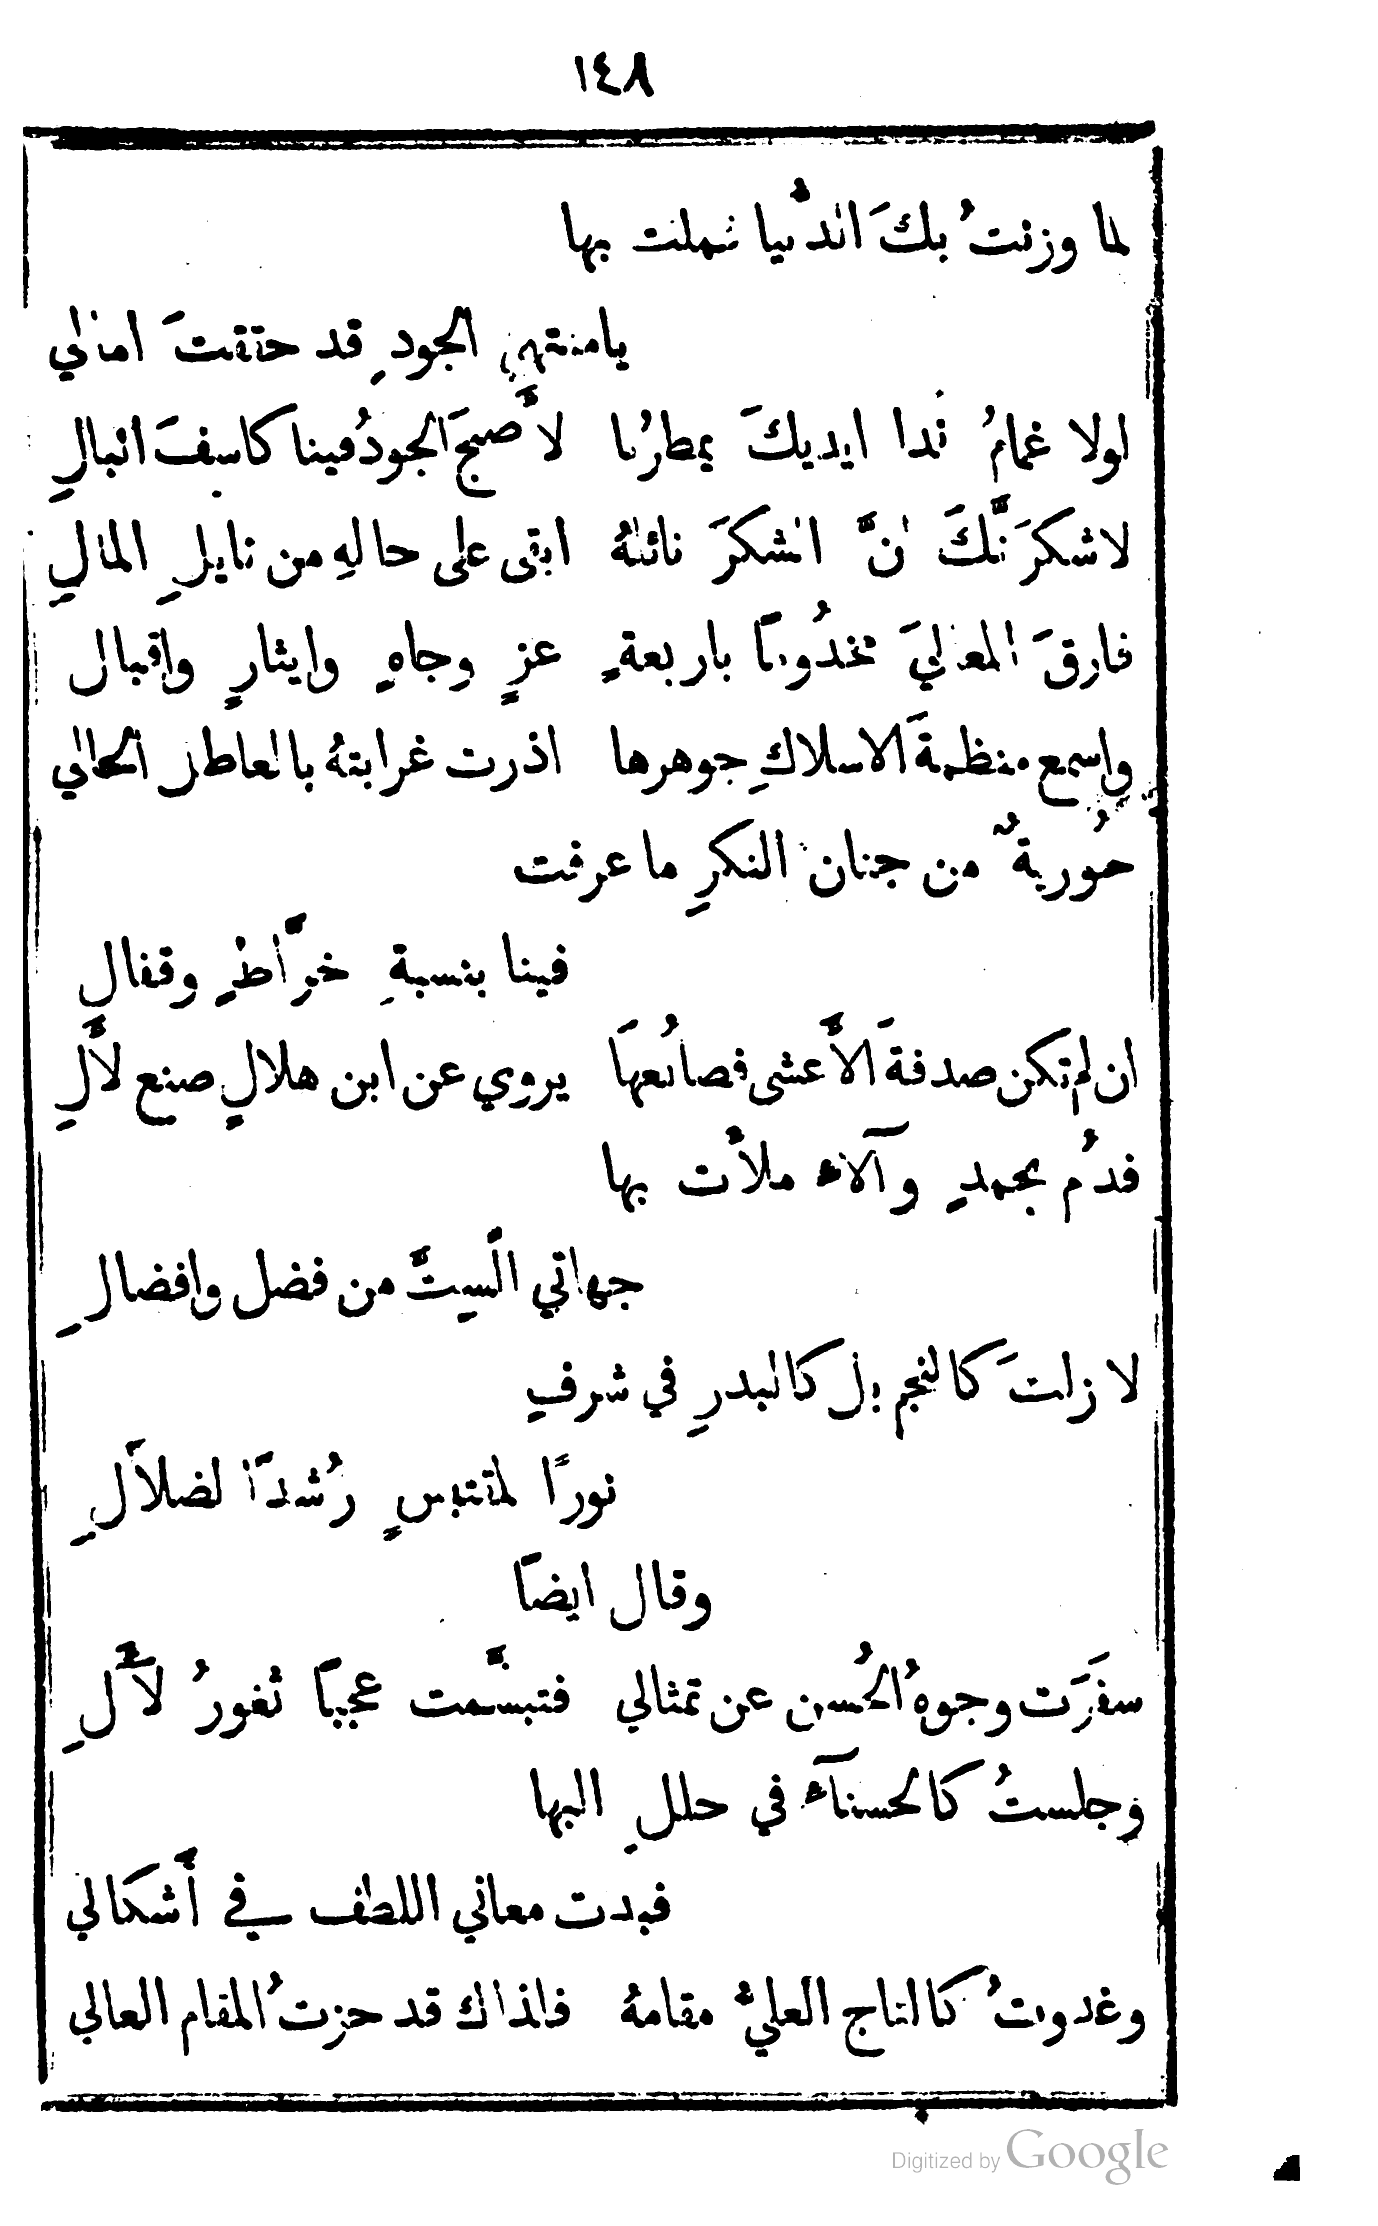 ١٤٨
لما وزنتُ بكَ الدُّنيا شملت بها
يامنتهى الجودِ قد حققتَ امالي
لولا غمامُ ندا ايديكَ يمطرُنا لأَصبحَ الجودُ فينا كاسِفَ البالِ
لاشكرَنَّكَ انَّ الشكرَ نائلهُ ابقى على حالهِ من نايلِ المالِ
فارقَ المعاليَ مخدُومًا باربعةٍ عزٍ وجاهٍ وايثارٍ واقبال
واسمع منظمةَ الاسلاكِ جوهرها اذرت غرابتهُ بالعاطل الحالي
حُوريةٌ من جنان الفكرِ ما عرفت
فينا بنسبةِ خرَّاطٍ وقفالِ
ان لم تكن صدفةَ الأَعشى فصانُعهَا يروي عن ابن هلالٍ صنع لأَّلِ
فدُم بحمدٍ وآلاء ملأَت بها
جهاتي الَّسِتَّ من فضل وافضالِ
لا زلتَ كالنجم بل كالبدرِ في شرفٍ
نورًا لمقتبسٍ رُشدًا لضلاَلِ
وقال ايضاً
سفَرَت وجوهُ الحُسن عن تمثالي فتبسَّمت عجبًا ثغورُ لأَّلِ
وجلستُ كالحسنآء في حللِ البها
فبدت معاني اللطف في أَشكالي
وغدوتُ كالتاج العليِّ مقامهُ فلذاك قد حزتُ المقام العالي
Digitized by Google